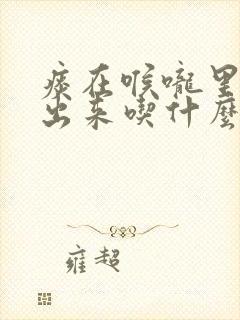 痰在喉咙里
出来喫什麼
雍超